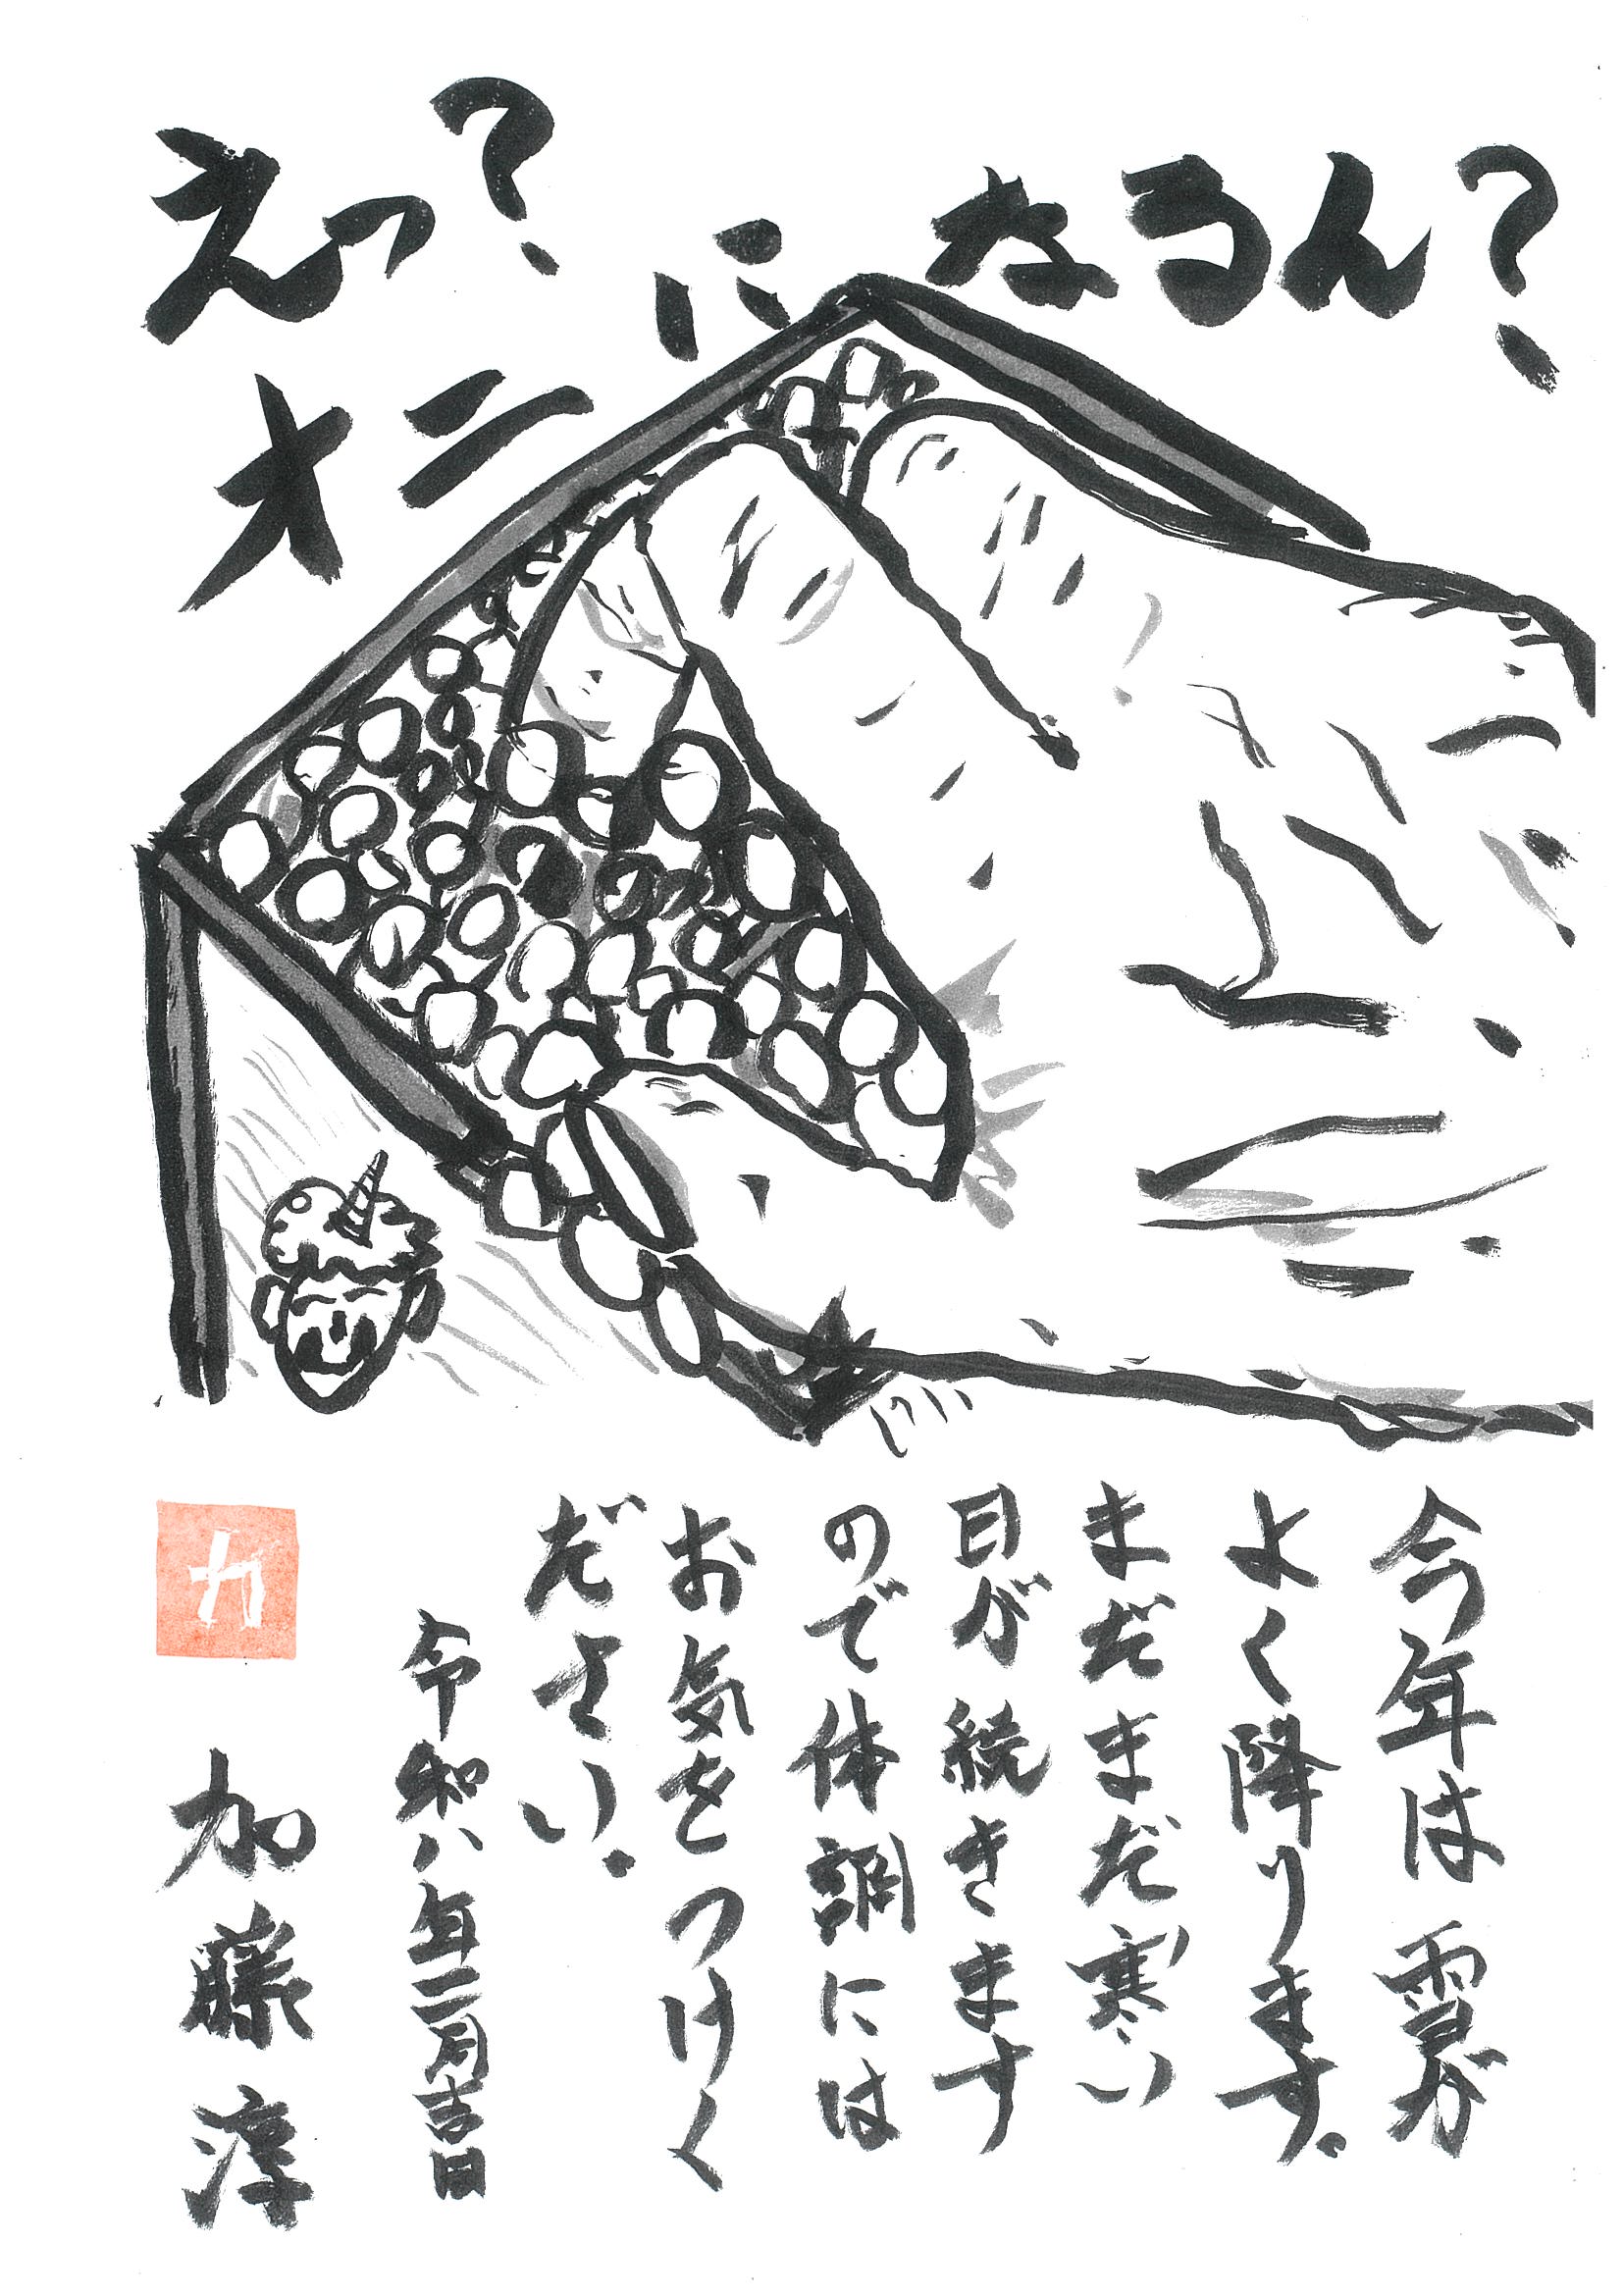 えっ?
オニ
に
なるん?
今年は雪が
よく降ります。
まだまだ寒い
日が続きます
ので体調には
お気をつけく
ださい。
令和八年二月吉日
加藤淳
カ